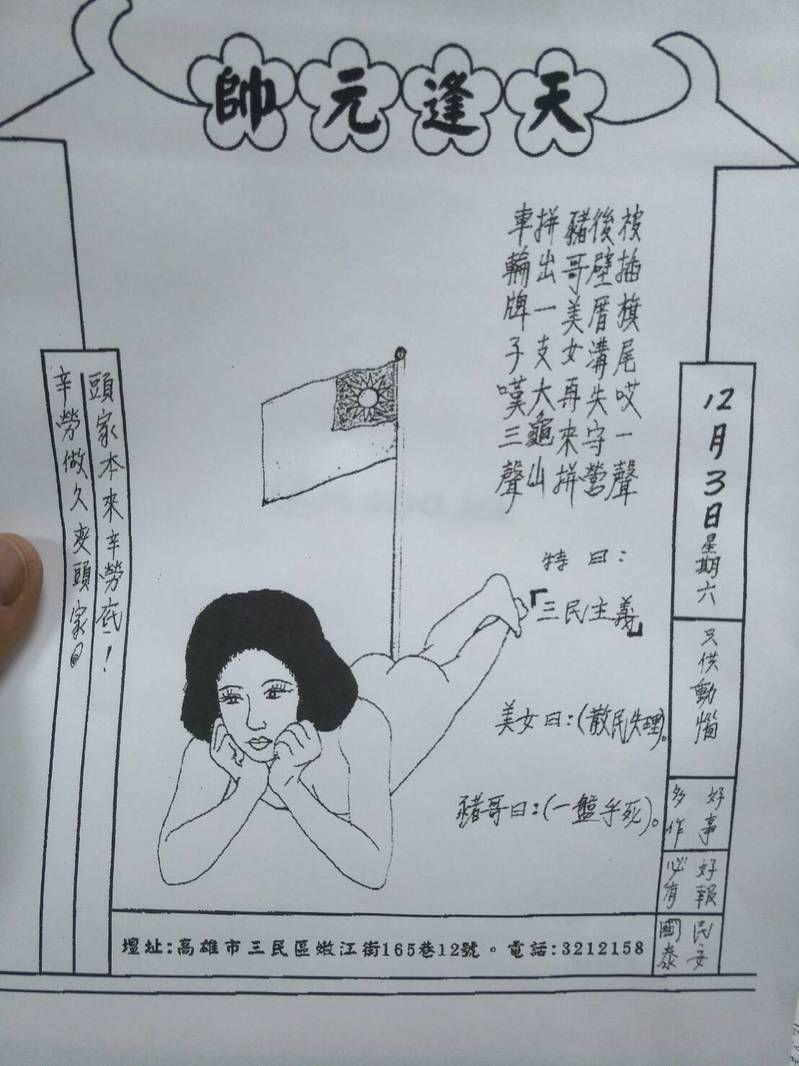 天逢元帥
被插旗尾哎一聲
後壁厝溝失守營
豬哥美女再來拼
拼出一支大龜山
車輪牌子嘆三聲
特曰：
「三民主義」
美女曰：(散民失理)。
豬哥曰：(一盤乎死)。
12月3日星期六
只供動惱
好事多作
好報必有
民安國泰
頭家本來辛勞底！
辛勞做久变頭家。
壇址:高雄市三民區嫩江街165巷12號。電話:3212158